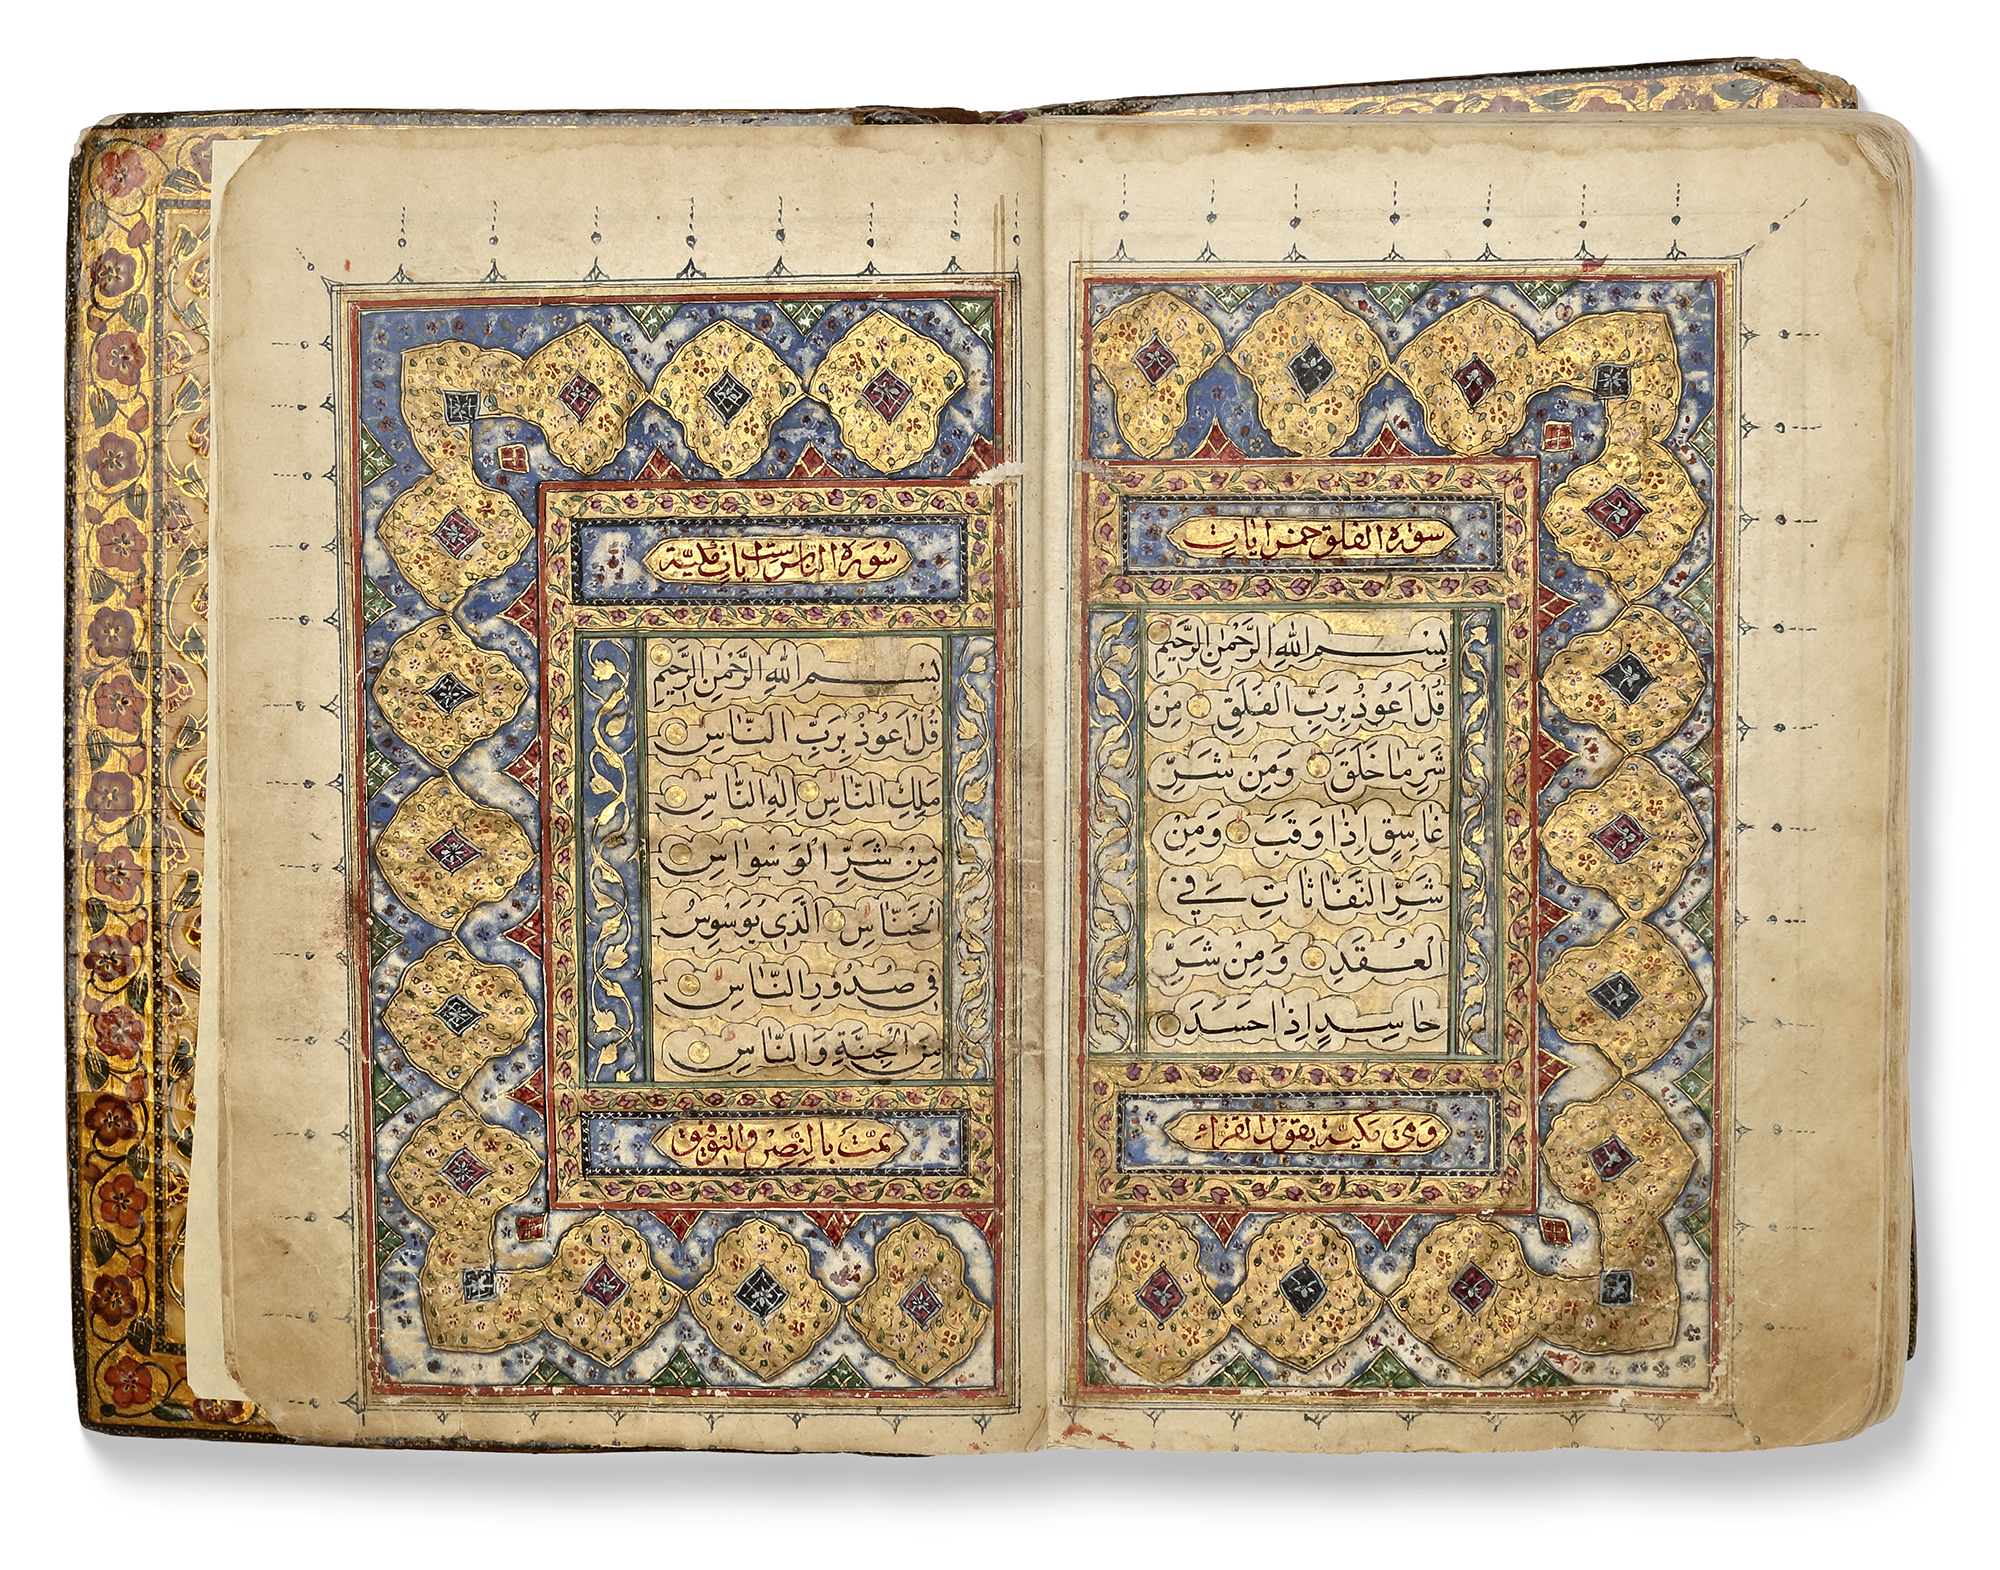 سورة الفلق خمس ايات
بِسْمِ اللهِ الرَّحْمٰنِ الرَّحِيْمِ
قُلْ اَعُوْذُ بِرَبِّ الْفَلَقِ مِنْ
شَرِّ مَا خَلَقَ وَمِنْ شَرِّ
غَاسِقٍ اِذَا وَقَبَ وَمِنْ
شَرِّ النَّفَّاثَاتِ فِي
الْعُقَدِ وَمِنْ شَرِّ
حَاسِدٍ اِذَا حَسَدَ
وهي مكية بقول القراء
سورة الناس ست ايات مكية
بِسْمِ اللهِ الرَّحْمٰنِ الرَّحِيْمِ
قُلْ اَعُوْذُ بِرَبِّ النَّاسِ
مَلِكِ النَّاسِ اِلٰهِ النَّاسِ
مِنْ شَرِّ الْوَسْوَاسِ
الْخَنَّاسِ الَّذِي يُوَسْوِسُ
فِي صُدُوْرِ النَّاسِ
مِنَ الْجِنَّةِ وَالنَّاسِ
تمت بالنصر والتوفيق